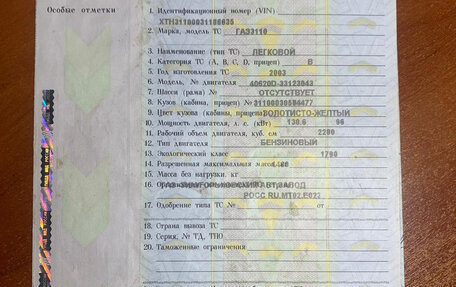 Особые отметки
1. Идентификационный номер (VIN)
XTH31100031186635
2. Марка, модель ТС ГАЗ3110
3. Наименование (тип ТС) ЛЕГКОВОЙ
4. Категория ТС (A, B, C, D, прицеп) B
5. Год изготовления ТС 2003
6. Модель, № двигателя 40620D-33123043
7. Шасси (рама) № ОТСУТСТВУЕТ
8. Кузов (кабина, прицеп) № 31100030584477
9. Цвет кузова (кабины, прицепа) ЗОЛОТИСТО-ЖЕЛТЫЙ
10. Мощность двигателя, л. с. (кВт) 130.6 96
11. Рабочий объем двигателя, куб. см 2280
12. Тип двигателя БЕНЗИНОВЫЙ
13. Экологический класс 1790
14. Разрешенная максимальная масса
15. Масса без нагрузки, кг
РОСС RU.MT02.E022
17. Одобрение типа ТС № от
18. Страна вывоза ТС
19. Серия, № ТД, ТПО
20. Таможенные ограничения